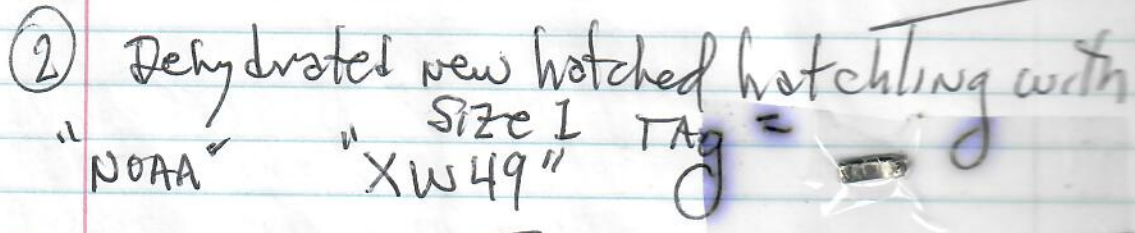 ② Dehydrated new hatched hatchling with
Size 1 TAg =
"NOAA" "XW49"